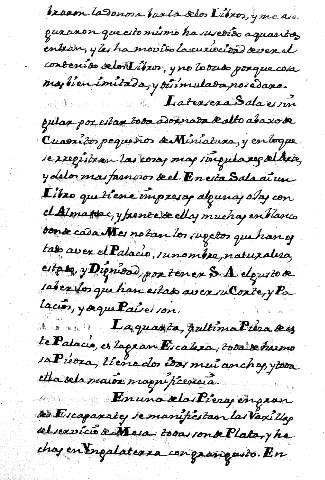 braron la donosa burla de los Libros, y me ase
guraron que esto mismo ha susedido a quantos
entran, y les ha movido la curiocidad de ver el
contenido de los Libros, y no lo dudo porque cosa
mas bien imitada, y disimulada, no se dara.
La tersera Sala es sin
gular por estar toda adornada de alto abaxo de
Cuadritos pequeños de Miniatura, y en lo que
se rregistran las cosas mas singulares del Arte,
y de los mas famosos de el. En esta Sala ai un
Libro que tiene impresas algunas ojas con
el Almanac, y frente de ellas muchas en blanco
donde cada Mes notan los sugetos que han es
tado a ver el Palacio, su nombre, naturaleza,
estado, y Dignidad, por tener S. A. el gusto de
saber los que han estado a ver su Corte, y Pa
lacios, y de que Pais eison.
La quarta, y ultima Pieza de es
te Palacio, es la gran Escalera, toda de hermo
sa Piedra, tiene dos idas mui anchas, y toda
ella de la maior magnificencia.
En una de las Piezas en gran
des Escaparates se manifiestan las Vaxillas
del servicio de Mesa: todas son de Plata, y he
chas en Yngalaterra con gran gusto. En